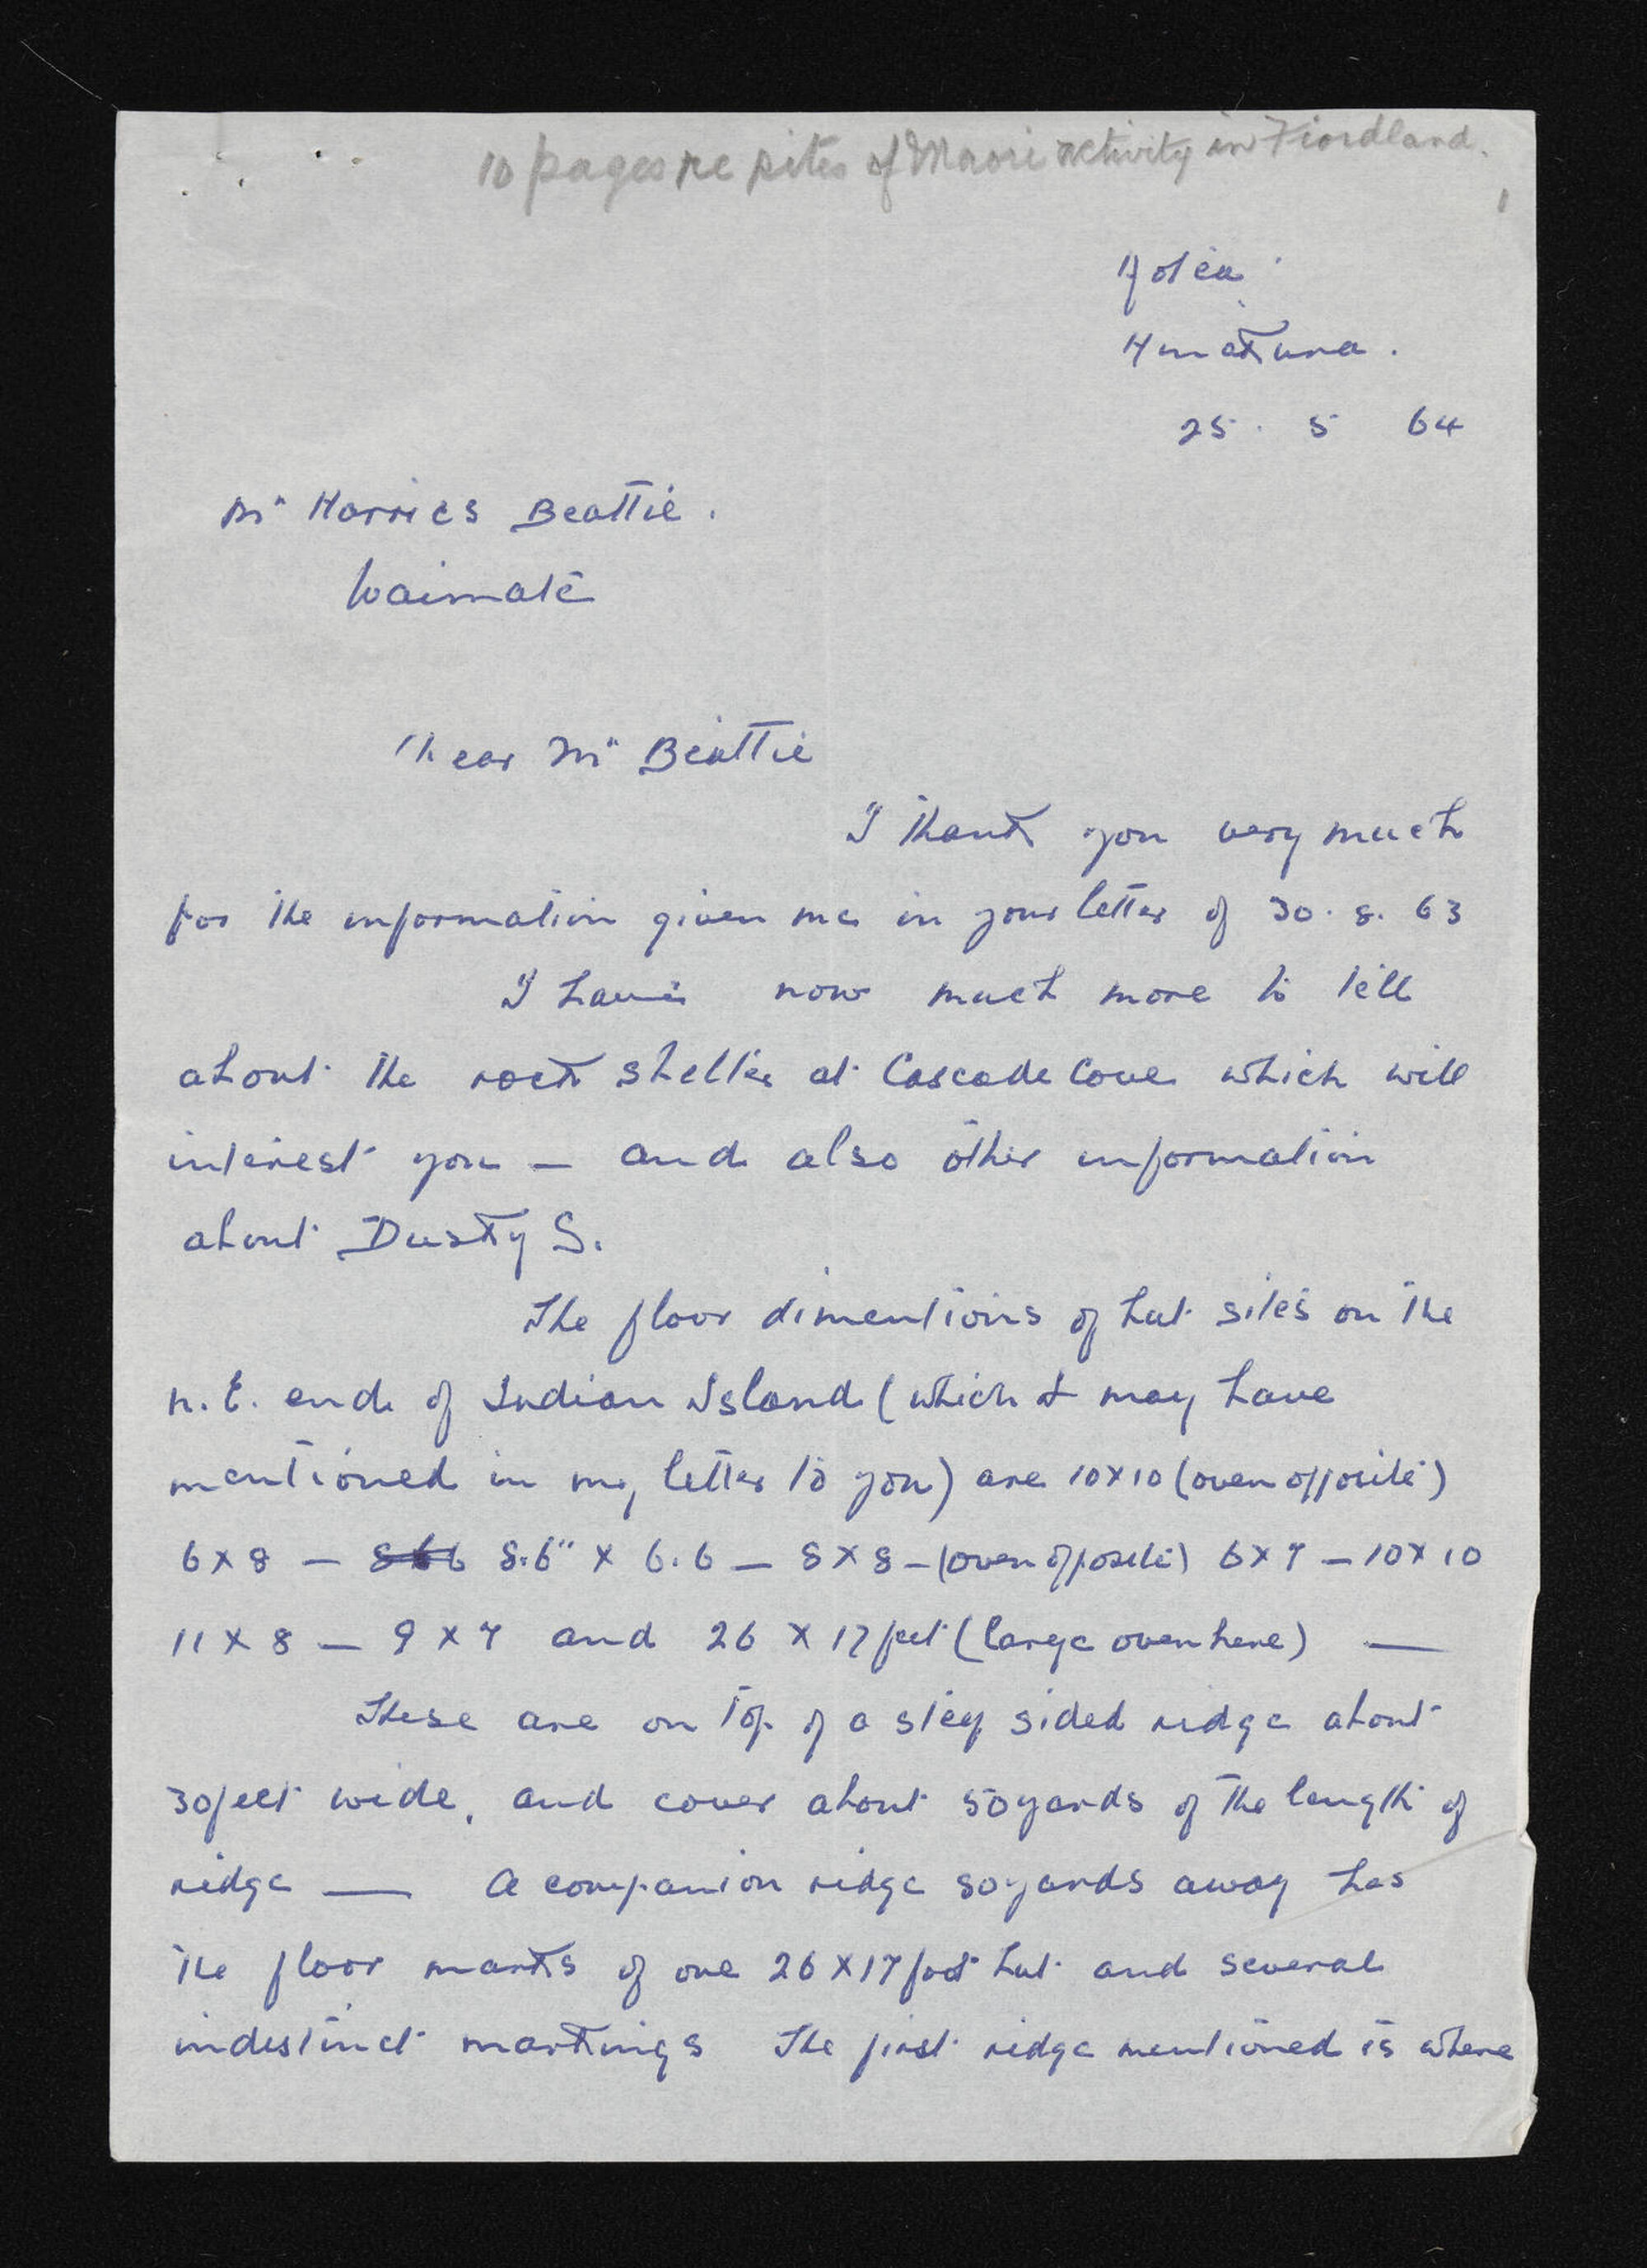 10 pages re sites of Maori activity in Fiordland.
1
Hotea
Amatuna.
25. 5 64
Mr Harries Beattie.
Waimate
Dear Mr Beattie
I thank you very much
for the information given me in your letter of 30. 8. 63
I have now much more to tell
about the rock shelter at Cascade Cove which will
interest you — and also other information
about Dusky S.
The floor dimentions of hut sites on the
N.E. end of Indian Island (which I may have
mentioned in my letter to you) are 10x10 (oven opposite)
6x8 — 8.6" x 6.6 — 8x8 — (oven opposite) 6x7 — 10x10
11x8 — 9x7 and 26 x 17 feet (large oven here) —
These are on top of a steep sided ridge about
30 feet wide, and cover about 50 yards of the length of
ridge — A companion ridge 80 yards away has
the floor marks of one 26x17 foot hut and several
indestinct markings The first ridge mentioned is where